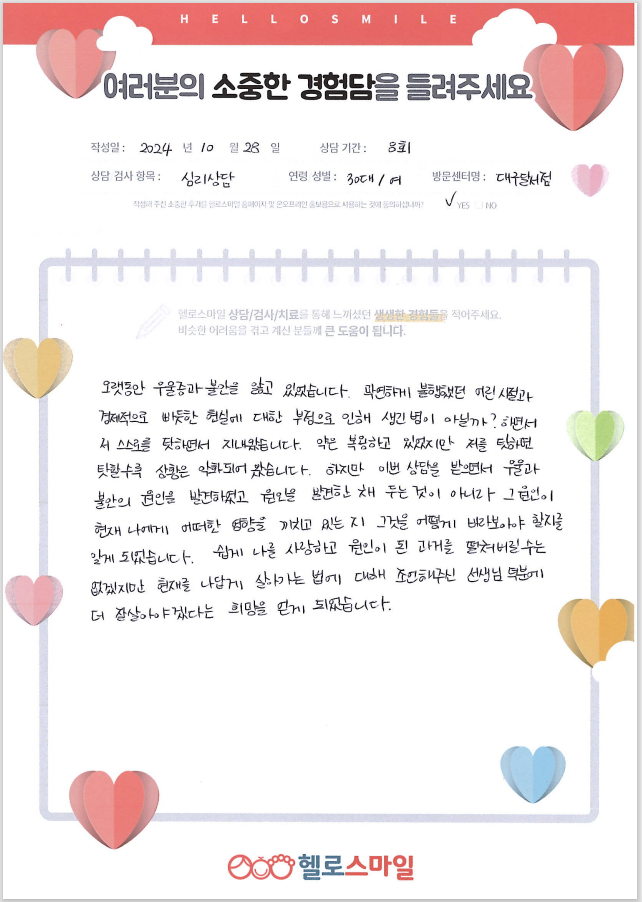 HELLOSMILE
여러분의 소중한 경험담을 들려주세요
작성일 : 2024 년 10 월 28 일 상담 기간 : 8회
상담 검사 항목 : 심리상담 연령 성별 : 30대 / 여 방문센터명 : 대구달서점
작성해 주신 소중한 후기를 헬로스마일 홈페이지 및 온오프라인 홍보용으로 사용하는 것에 동의하십니까? ✓ YES □ NO
헬로스마일 상담/검사/치료를 통해 느끼셨던 생생한 경험들을 적어주세요.
비슷한 어려움을 겪고 계신 분들께 큰 도움이 됩니다.
오랫동안 우울증과 불안을 앓고 있었습니다. 막연하게 불행했던 어린 시절과
경제적으로 빠듯한 현실에 대한 부정으로 인해 생긴 병이 아닐까? 하면서
저 스스로를 탓하면서 지내왔습니다. 약은 복용하고 있었지만 저를 탓하면
탓할수록 상황은 악화되어 갔습니다. 하지만 이번 상담을 받으면서 우울과
불안의 원인을 발견하였고 원인을 발견한 채 두는 것이 아니라 그 원인이
현재 나에게 어떠한 영향을 끼치고 있는 지 그것을 어떻게 바라보아야 할지를
알게 되었습니다. 쉽게 나를 사랑하고 원인이 된 과거를 떨쳐버릴 수는
없겠지만 현재를 나답게 살아가는 법에 대해 조언해주신 선생님 덕분에
더 잘살아야겠다는 희망을 얻게 되었습니다.
헬로스마일